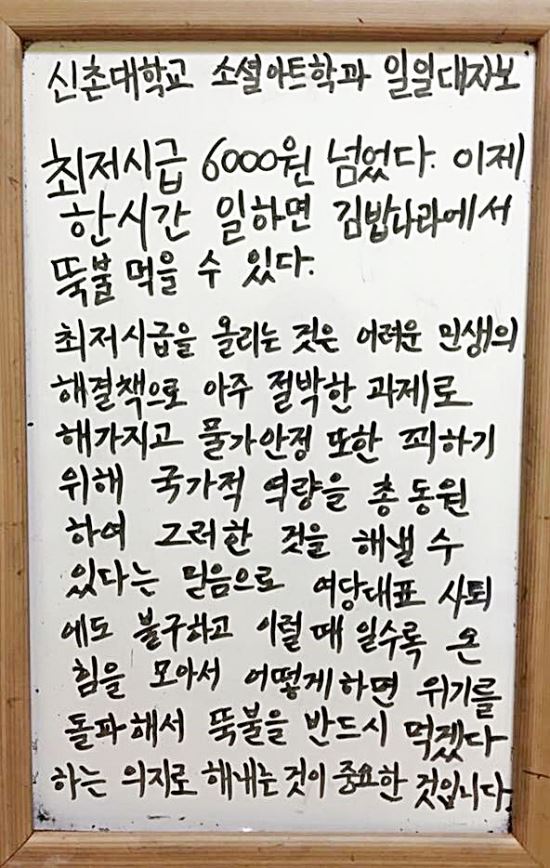 신촌대학교 소셜아트학과 일일대자보
최저시급 6000원 넘었다. 이제
한시간 일하면 김밥나라에서
뚝불 먹을 수 있다.
최저시급을 올리는 것은 어려운 민생의
해결책으로 아주 절박한 과제로
해가지고 물가안정 또한 꾀하기
위해 국가적 역량을 총동원
하여 그러한 것을 해낼 수
있다는 믿음으로 여당대표 사퇴
에도 불구하고 이럴 때 일수록 온
힘을 모아서 어떻게하면 위기를
돌파해서 뚝불을 반드시 먹겠다
하는 의지로 해내는 것이 중요한 것입니다.